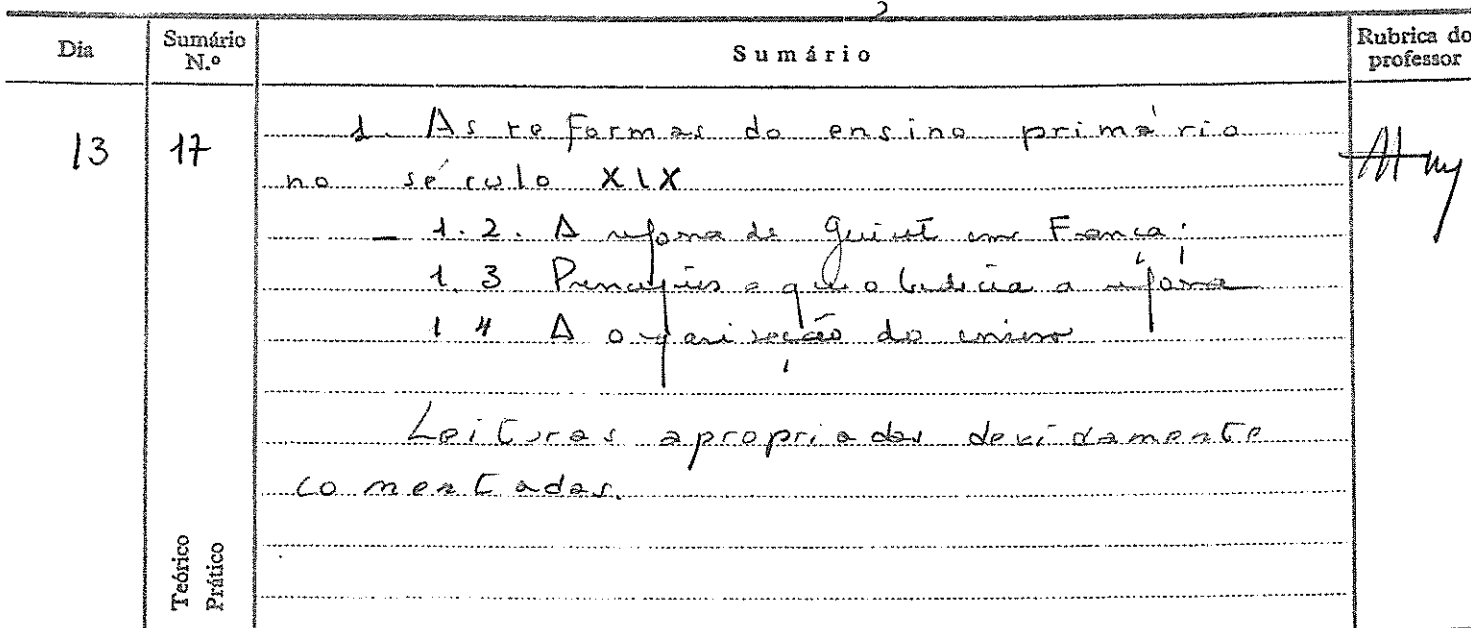 Dia
Sumário N.º
Sumário
Rubrica do professor
13
17
1. As reformas do ensino primário
no século XIX
– 1.2. A reforma de Guizot em França;
1.3 Princípios a que obedecia a reforma
1.4 A organização do ensino
Leituras apropriadas devidamente
comentadas.
Teórico
Prático